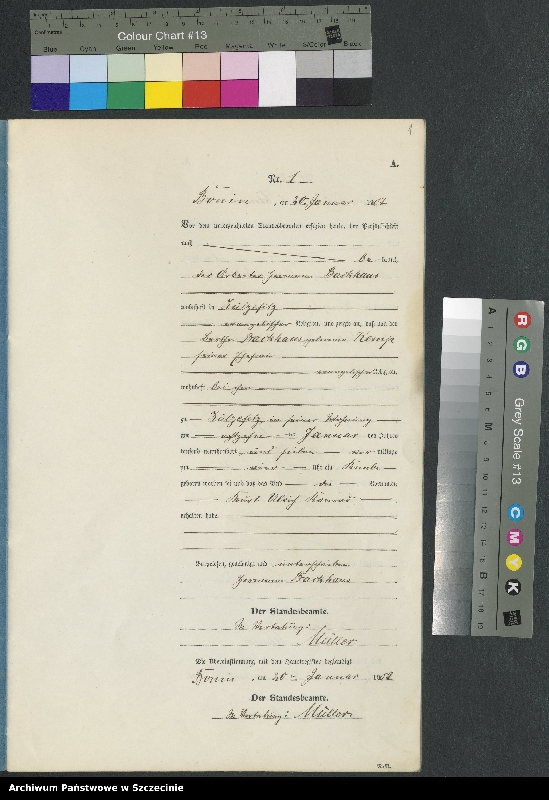 Centimetres
Colour Chart #13
Blue Cyan Green Yellow Red Magenta White 3/Color Black
1
A.
Nr. 1
Bonin, am 20. Januar 1907
Vor dem unterzeichneten Standesbeamten erschien heute, der Persönlichkeit
nach
bekannt,
der Arbeiter Hermann Backhaus
wohnhaft in
evangelischer Religion, und zeigte an, daß von der
Backhaus geborenen
seiner Ehefrau
evangelischer Religion,
wohnhaft bei ihm
zu in seiner Wohnung
am achtzehn ten Januar des Jahres
tausend neunhundert und sieben vor mittags
um Uhr ein Knabe
geboren worden sei und daß das Kind die Vornamen
Ulrich
erhalten habe.
Vorgelesen, genehmigt und unterschrieben
Hermann Backhaus
Der Standesbeamte.
In Vertretung:
Müller
Die Übereinstimmung mit dem Hauptregister beglaubigt
Bonin, am 20 ten Januar 1907
Der Standesbeamte.
In Vertretung: Müller
Grey Scale #13
A 1 2 3 4 5 6 M 8 9 10 11 12 13 14 15 B 17 18 19
R G B C M Y K
Archiwum Państwowe w Szczecinie